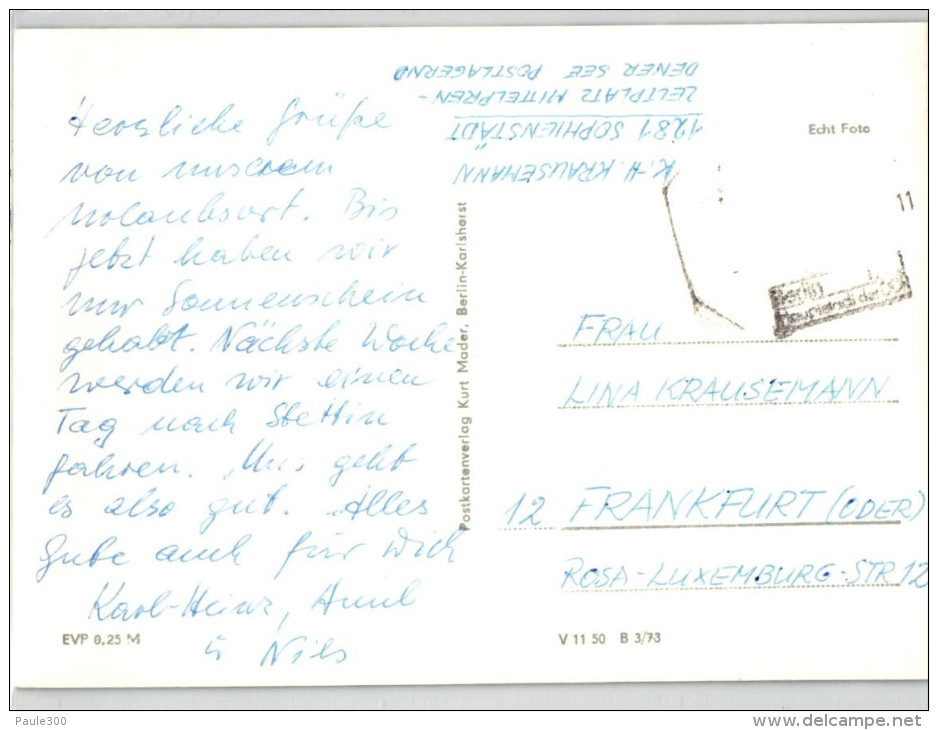 Herzliche Grüße
von unserem
Urlaubsort. Bis
jetzt haben wir
nur Sonnenschein
gehabt. Nächste Woche
werden wir einen
Tag nach Stettin
fahren. Uns geht
es also gut. Alles
Gute auch für Dich
Karl-Heinz,
u Nils
EVP 0,25 M
K.-H. KRAUSEMANN
1281 SOPHIENSTÄDT
ZELTPLATZ MITTELPREN-
DENER SEE POSTLAGERND
Echt Foto
11
Berlin
Hauptstadt der
Postkartenverlag Kurt Mader, Berlin-Karlshorst
FRAU
LINA KRAUSEMANN
12 FRANKFURT (ODER)
ROSA-LUXEMBURG-STR 12
V 11 50 B 3/73
Paule300
www.delcampe.net